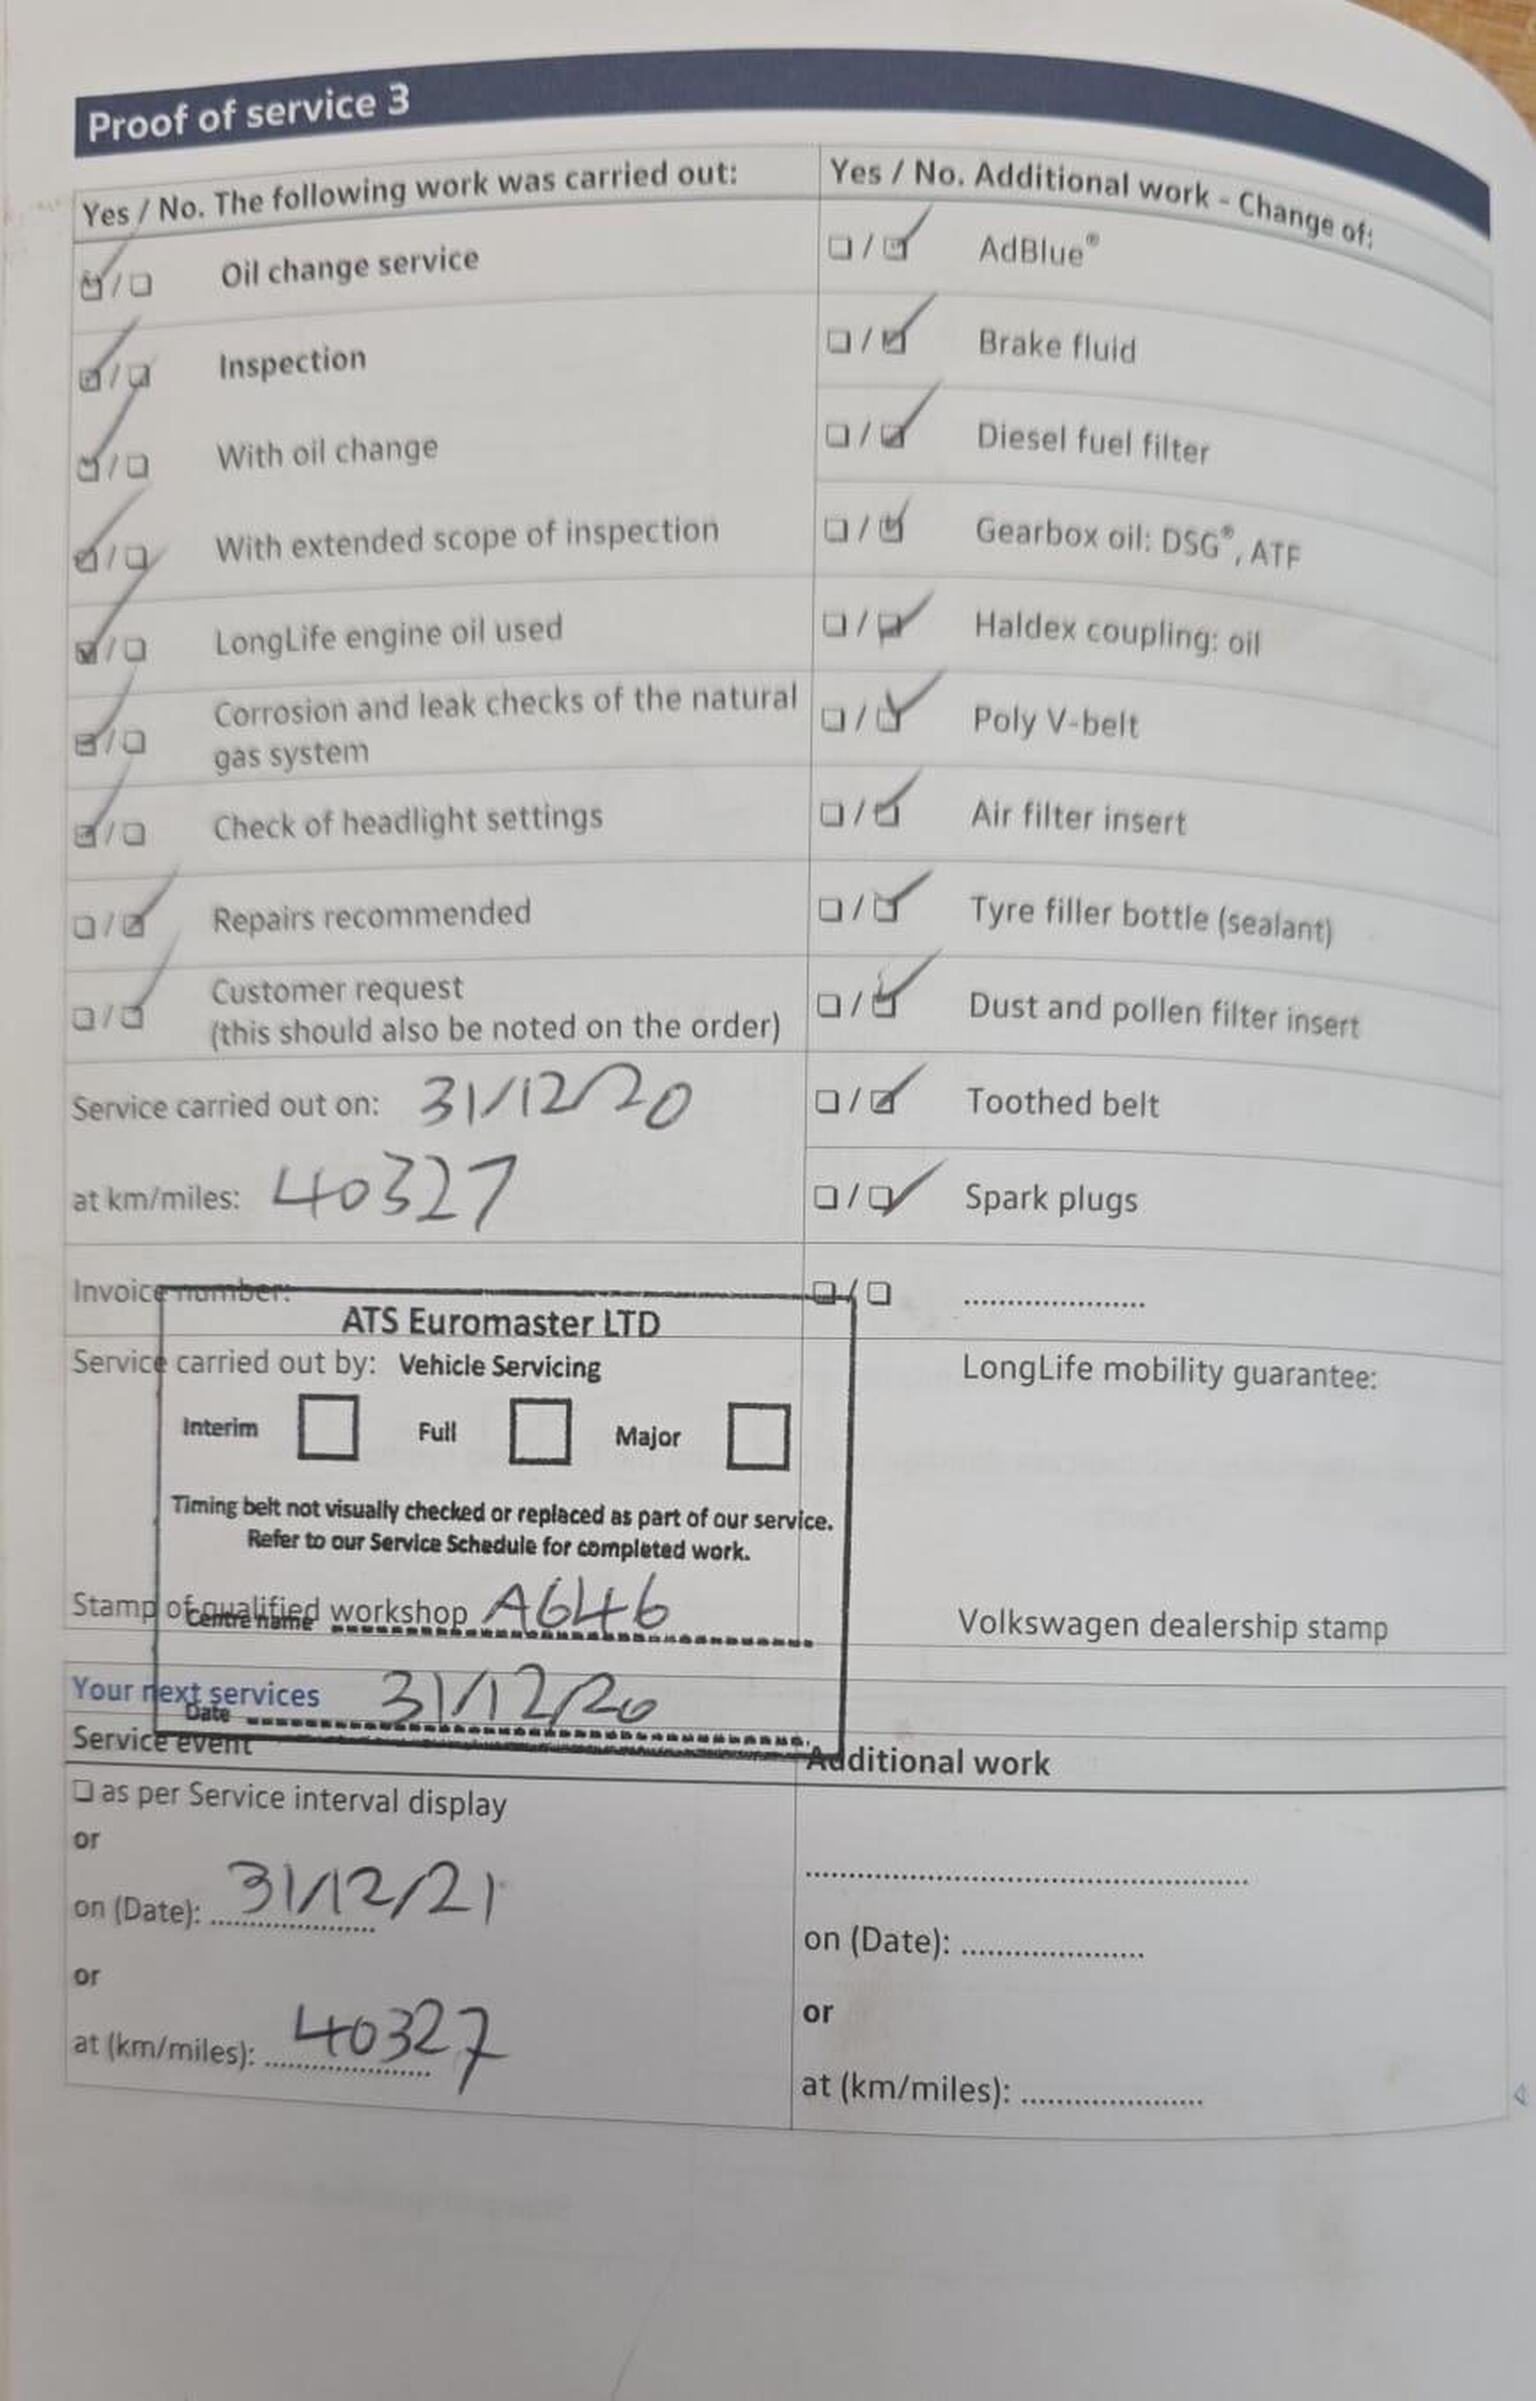 Proof of service 3
Yes / No. The following work was carried out:
Oil change service
Inspection
With oil change
With extended scope of inspection
LongLife engine oil used
Corrosion and leak checks of the natural
gas system
Check of headlight settings
Repairs recommended
Customer request
(this should also be noted on the order)
Service carried out on: 31/12/20
at km/miles: 40327
Invoice number:
ATS Euromaster LTD
Service carried out by: Vehicle Servicing
Interim Full Major
Timing belt not visually checked or replaced as part of our service.
Refer to our Service Schedule for completed work.
Stamp of qualified workshop
Centre name A646
Yes / No. Additional work - Change of:
AdBlue®
Brake fluid
Diesel fuel filter
Gearbox oil: DSG®, ATF
Haldex coupling: oil
Poly V-belt
Air filter insert
Tyre filler bottle (sealant)
Dust and pollen filter insert
Toothed belt
Spark plugs
LongLife mobility guarantee:
Volkswagen dealership stamp
Your next services
Date 31/12/20
Service event
as per Service interval display
or
on (Date): 31/12/21
or
at (km/miles): 40327
Additional work
on (Date):
or
at (km/miles):